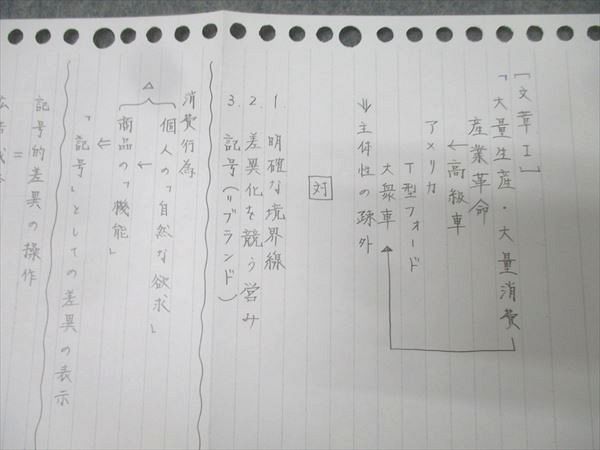 [文章Ⅰ]
「大量生産・大量消費」
産業革命
↓高級車
アメリカ
T型フォード
大衆車
⇓主体性の疎外
対
1. 明確な境界線
2. 差異化を競う営み
3. 記号(リブランド)
消費行為
個人の「自然な欲求」
↓
商品の「機能」
⇓
「記号」としての差異の表示
=
記号的差異の操作